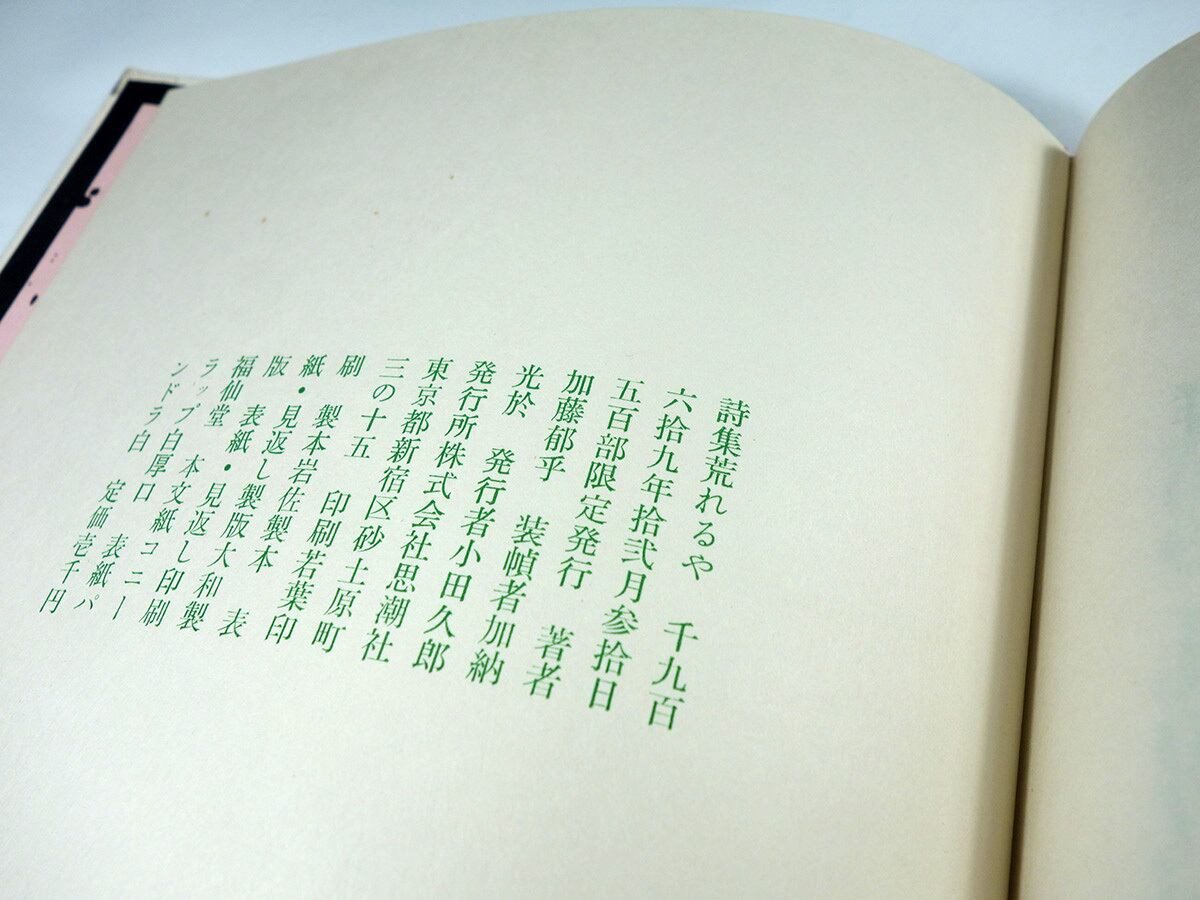 詩集荒れるや　千九百
六拾九年拾弐月参拾日
五百部限定発行　著者
加藤郁乎　装幀者加納
光於　発行者小田久郎
発行所株式会社思潮社
東京都新宿区砂土原町
三の十五　印刷若葉印
刷　製本岩佐製本　表
紙・見返し製版大和製
版　表紙・見返し印刷
福仙堂　本文紙コニー
ラップ白厚口　表紙パ
ンドラ白　定価壱千円